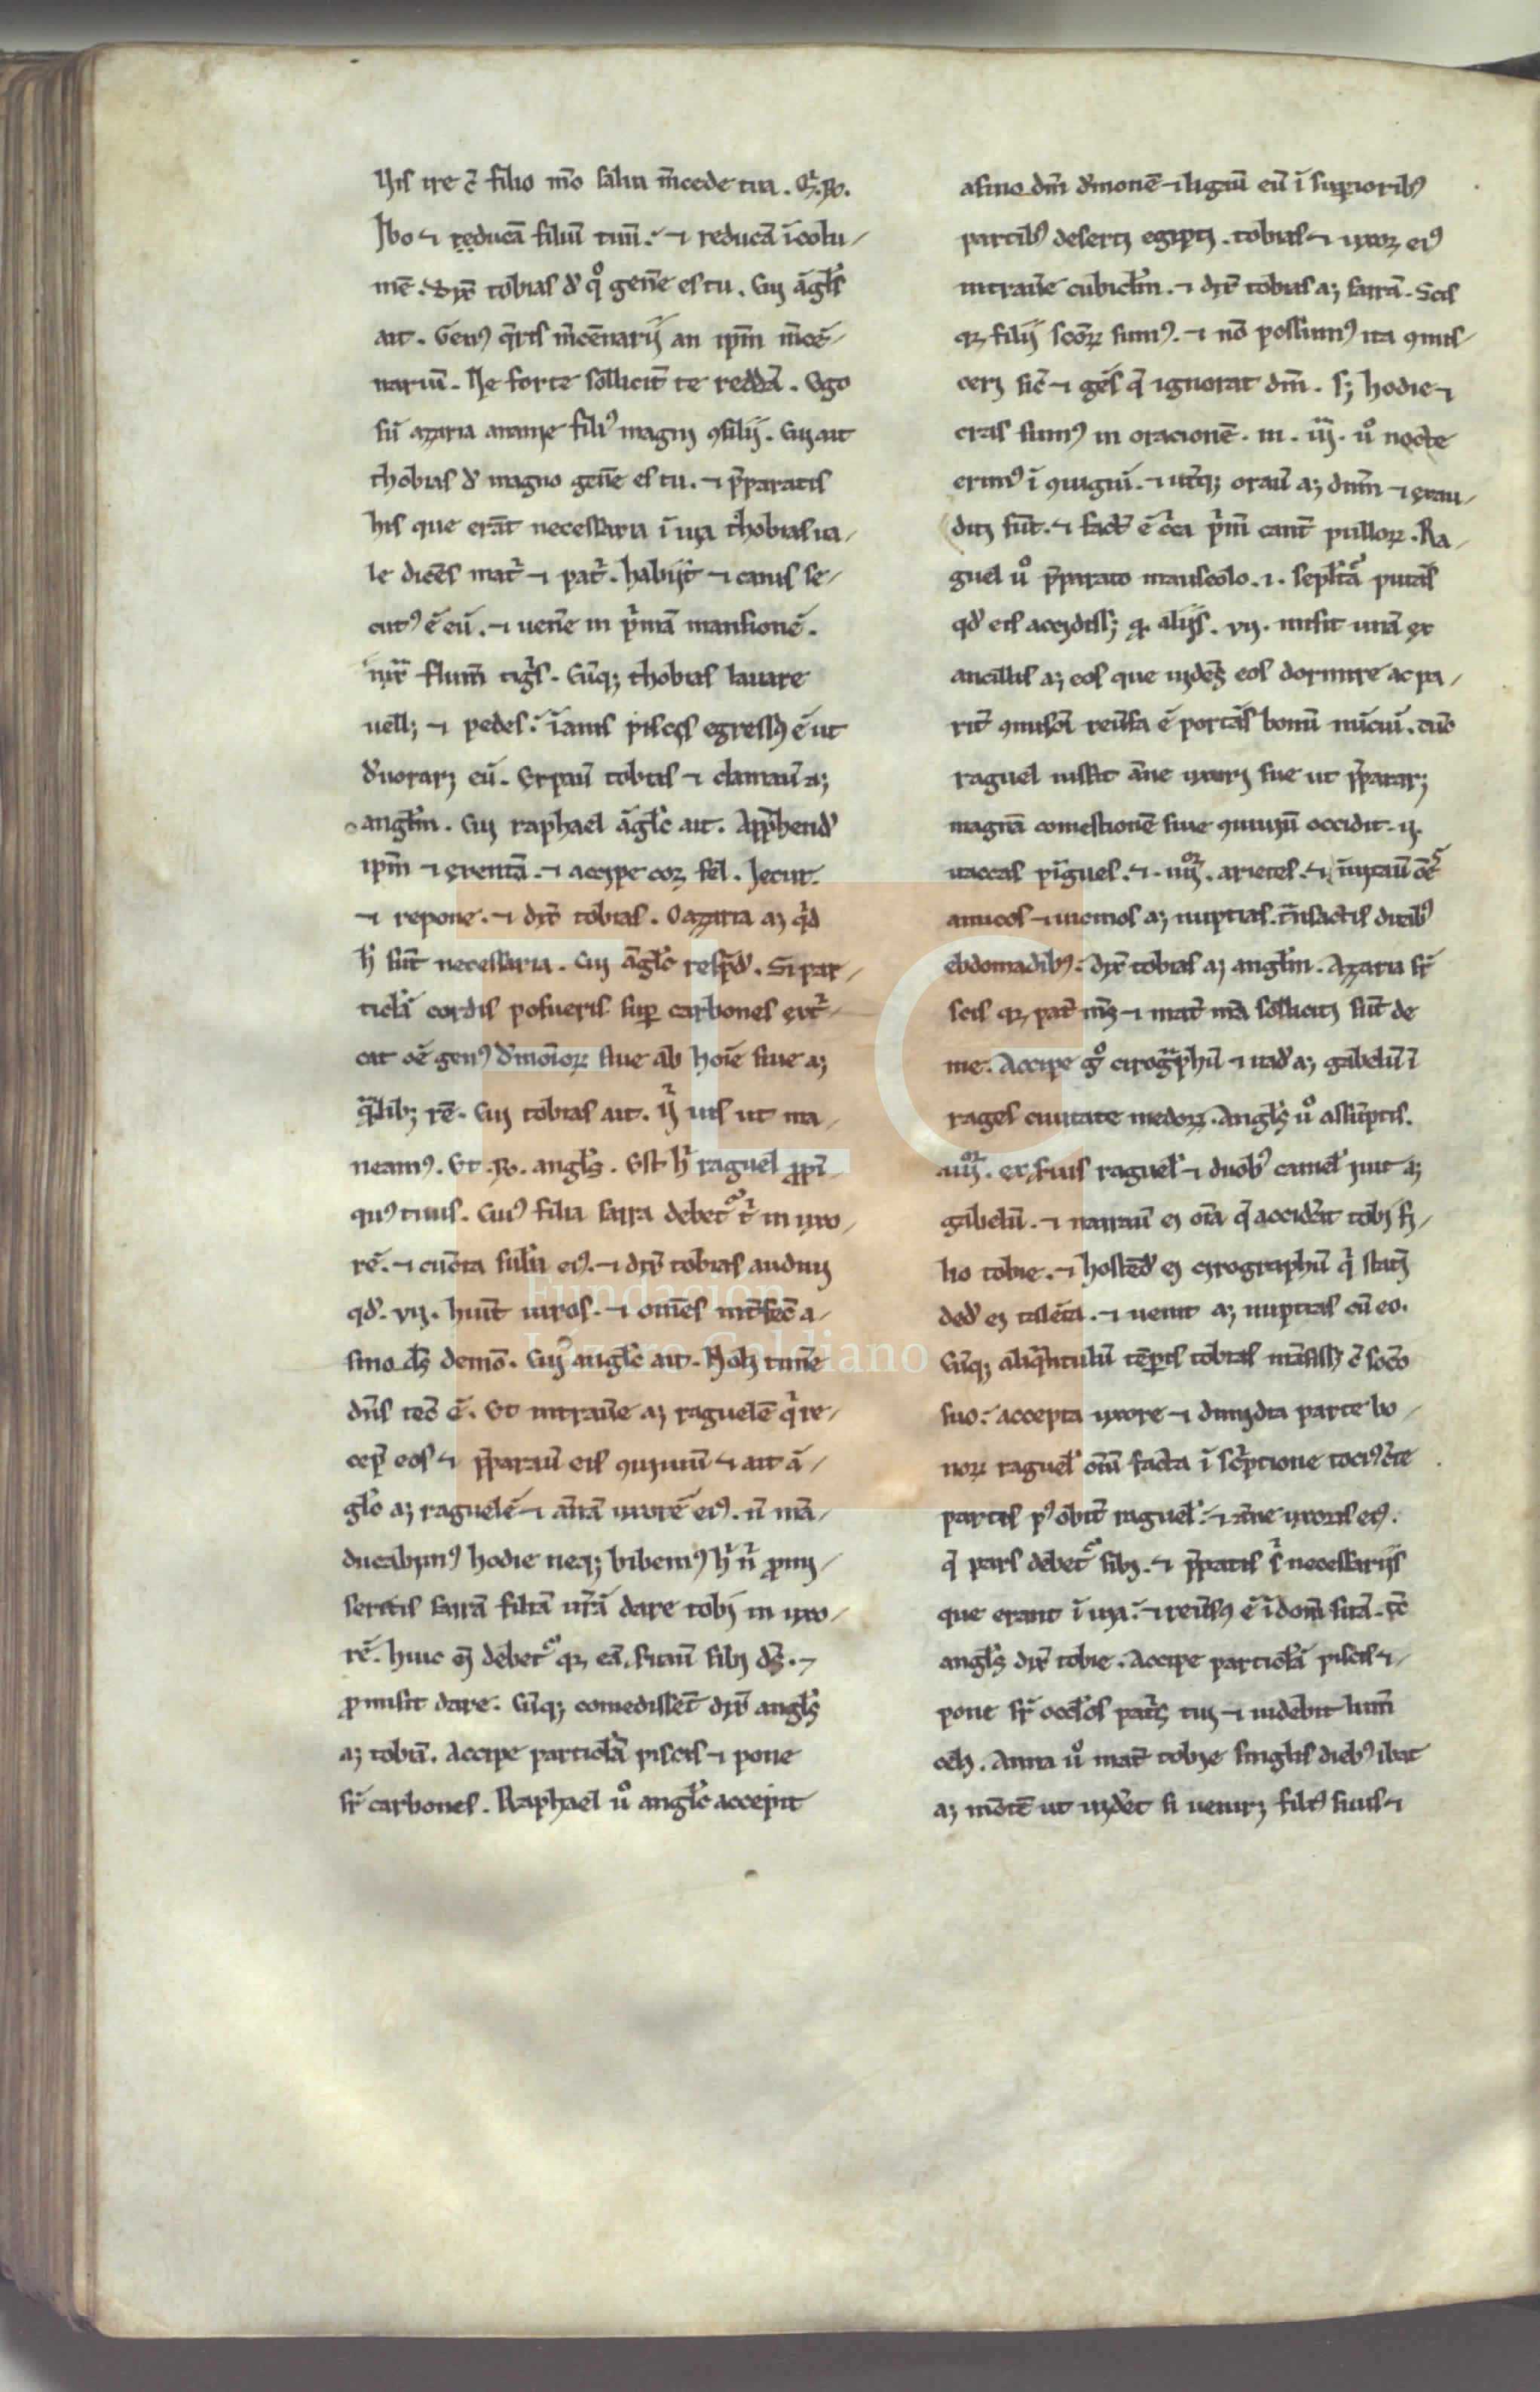 Uis ire c̄ filio m̄o salua m̄cede tua. Qͥ. R̄.
Ibo ⁊ reducā filiū tuū. ⁊ reducā īcolu-
mē. dix̄ tobias d̉ qͦ gen̄e es tu. Cui āgl̄s
ait. Genꝰ q̄ris m̄cēnarij an ip̄m m̄cē-
nariū. Ne forte sollicit̄ te reddā. Ego
sū azaria ananie filiꝰ magni ꝯsilij. Cui ait
thobias d̉ magno gen̄e es tu. ⁊ p̄paratis
his que erāt necessaria ī uia thobias ua-
le dicēs mat̄ ⁊ pat̄. habijt ⁊ canis se-
cutꝰ ē eū. ⁊ uen̄e in p̄mā mansionē.
iux̄ flum̄ tigͥs. Cūq; thobias lauare
uell; ⁊ pedes. īanis piscis egressꝰ ē ut
d̉uoraꝫ eū. Expau̅ tobias ⁊ clamau̅ aꝫ
angl̄m. Cui raphael āgl̄c ait. App̄hend̉
ip̄m ⁊ exentā. ⁊ accipe coꝝ fel. Jecur.
⁊ repone. ⁊ dix̄ tobias. O azaria aꝫ qͥd
h̄ sūt necessaria. Cui āgl̄c resp̄d̉. Si par-
ticl̄ā cordis posueris suꝑ carbones ext̄-
cat oē genꝰ d̉monioꝝ siue ab hoīe siue aꝫ
q̄lib; rē. Cui tobias ait. ij uis ut ma-
neamꝰ. Et .R̄. angl̄s. Est h̄ raguel ꝓpī-
quꝰ tuus. Cuiꝰ filia sarra debet᷑ t̄ in uxo-
rē. ⁊ cūcta sul̄a eiꝰ. ⁊ dix̄ tobias audiui
qd̉. vij. hūit uiros. ⁊ om̄es int̄fec̄ a-
smo d̄s demō. Cui angl̄c ait. Noli tim̄e
dn̄s tec̄ ē. Et intrau̅e aꝫ raguelē qͥ re-
cep̄ eos ⁊ p̄parau̅ eis ꝯuiuiū ⁊ ait ā-
gl̄c aꝫ raguelē ⁊ annā uxorē eiꝰ. n̄ mā-
ducabimꝰ hodie neq; bibemꝰ h̄ n̄ ꝓmi-
seritis sarrā filiā ur̄ā dare tobi in uxo-
rē. huic ei debet᷑ qꝫ eā. siuau̅ sibi d̄s. ⁊
ꝓmisit dare. Cūq; comedissēt dix̄ angl̄s
aꝫ tobiā. Accipe particl̄ā piscis ⁊ pone
sr̄ carbones. Raphael uͦ angl̄c accepit
asmo dm̄ d̉monē ⁊ ligau̅ eū ī suꝑioribꝰ
partibꝰ deserti egipti. tobias ⁊ uxoꝝ eiꝰ
intrau̅e cubicl̄m. ⁊ dix̄ tobias aꝫ sarrā. Scis
qꝫ filij sc̄oꝝ sumꝰ. ⁊ nō possumꝰ ita ꝯiūs-
ceri sic̄ ⁊ gēs q̄ ignorat dm̄. sꝫ hodie ⁊
cras sumꝰ in oracionē. in. iiͣj. uͦ nocte
erimꝰ ī ꝯiugiū. ⁊ ut̄q; orau̅ aꝫ dn̄m ⁊ exau-
diti sūt. ⁊ fact̄ ē c̄ca p̄m̄ cant̄ pulloꝝ. Ra-
guel uͦ p̄parato mauseolo. i. sepl̄tā putās
qd̉ eis accidiss; ꝙ aliis. vij. misit unā ex
ancillis aꝫ eos que uidēs eos dormire ac pa-
rit̄ ꝯmisoī reu̅sa ē portās bonū nūciū. tūc
raguel iussit an̄e uxori sue ut p̄paraꝫ
magnā comestionē siue ꝯuiuiū occidit. ij.
uaccas pīgues. ⁊. iiij. arietes. ⁊ īuitau̅ oēs
amicos ⁊ uicinos aꝫ nuptias. t̄nsactis duabꝰ
ebdomadibꝰ. dix̄ tobias aꝫ angl̄m. Azaria fr̄
scis qꝫ pat̄ m̄s ⁊ mat̄ m̄a solliciti sūt de
me. Accipe gͦ cirogͣphū ⁊ uad̉ aꝫ gabelū ī
rages ciuitate medoꝝ. Angl̄s uͦ assūptis.
aiiij. ex suis raguel̄ ⁊ duobꝰ camel̄ iuit aꝫ
gabelū. ⁊ narrau̅ ei oīa q̄ accid̄it tobi fi-
lio tobie. ⁊ hostēd̉ ei cirographū qͥ stati
ded̉ ei talēta. ⁊ uenit aꝫ nuptias cū eo.
Cūq; aliqͣntulū tēꝑis tobias māsiss; c̄ soc̄o
suo. accepta uxore ⁊ dimidia parte bo-
noꝝ raguel̄ om̄iū facta ī sc̄ptione tociꝰ c̄te
partis pꝰ obitū raguel̄. ⁊ an̄e uxoris eiꝰ.
q̄ pars debet᷑ sibi. ⁊ p̄patis s̄ necessariis
que erant ī uia. ⁊ reu̅sꝰ ē ī domū suā. tc̄
angl̄s dix̄ tobie. Accipe particl̄ā piscis ⁊
pone sr̄ occl̄os pat̄s tui ⁊ uidebit lum̄
celi. Anna uͦ mat̄ tobie singlis diebꝰ ibat
aꝫ mōtē ut uid̄et si ueniꝝ filiꝰ suus ⁊